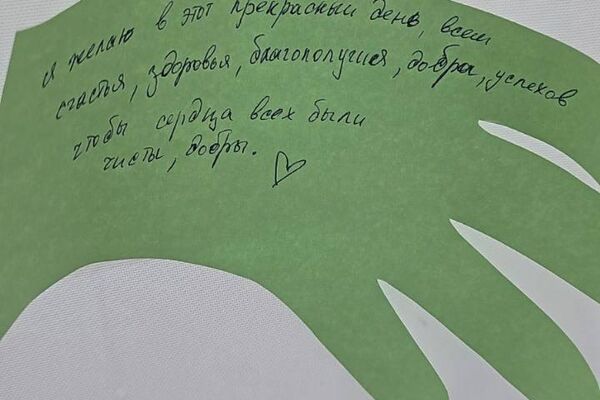 Я желаю в этот прекрасный день, всем
счастья, здоровья, благополучия, добра, успехов
чтобы сердца всех были
чисты, добры.